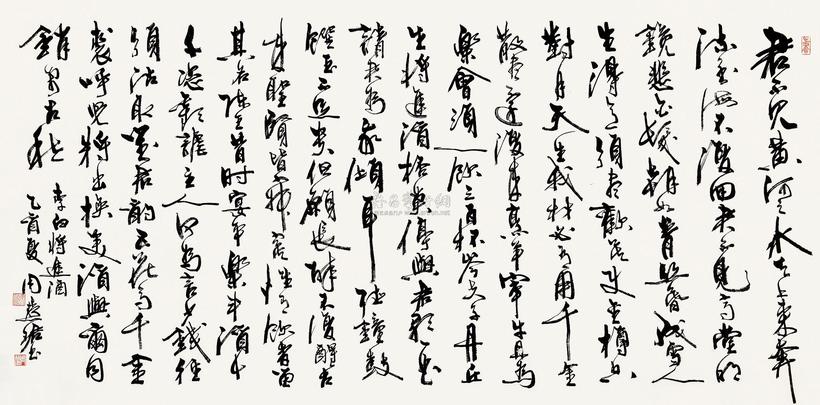 君不見黄河之水天上来奔
流到海不復回君不見高堂明
鏡悲白髮朝如青絲暮成雪人
生得意須盡歡莫使金樽空
對月天生我材必有用千金
散盡還復来烹羊宰牛且為
樂會須一飲三百杯岑夫子丹丘
生將進酒杯莫停與君歌一曲
請君為我傾耳聽鐘鼓
饌玉不足貴但願長醉不復醒古
来聖賢皆寂寞惟有飲者留
其名陳王昔時宴平樂斗酒十
千恣歡謔主人何為言少錢徑
須沽取對君酌五花馬千金
裘呼兒將出換美酒與爾同
銷萬古愁
李白將進酒
乙酉夏周書